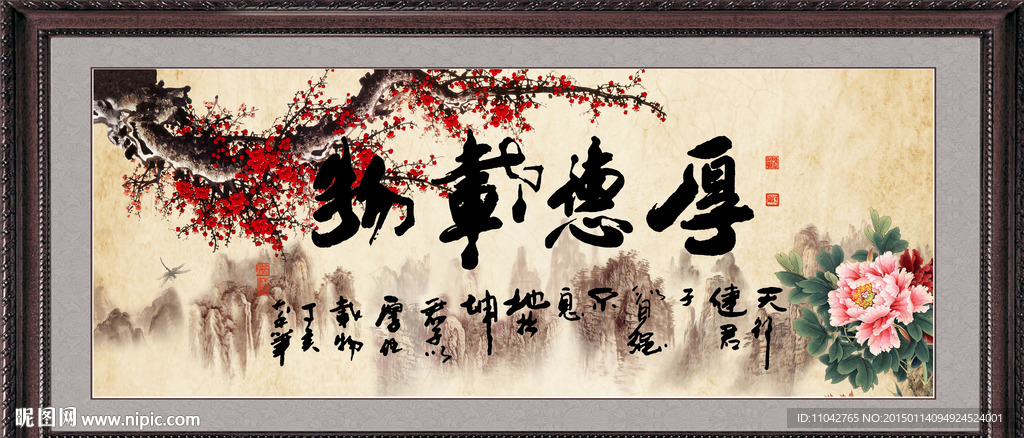 厚德載物
天行
健君
子
以自強
不
息
地勢
坤
君子以
厚德
載物
丁亥
昵图网 www.nipic.com
ID:11042765 NO:20150114094924524001